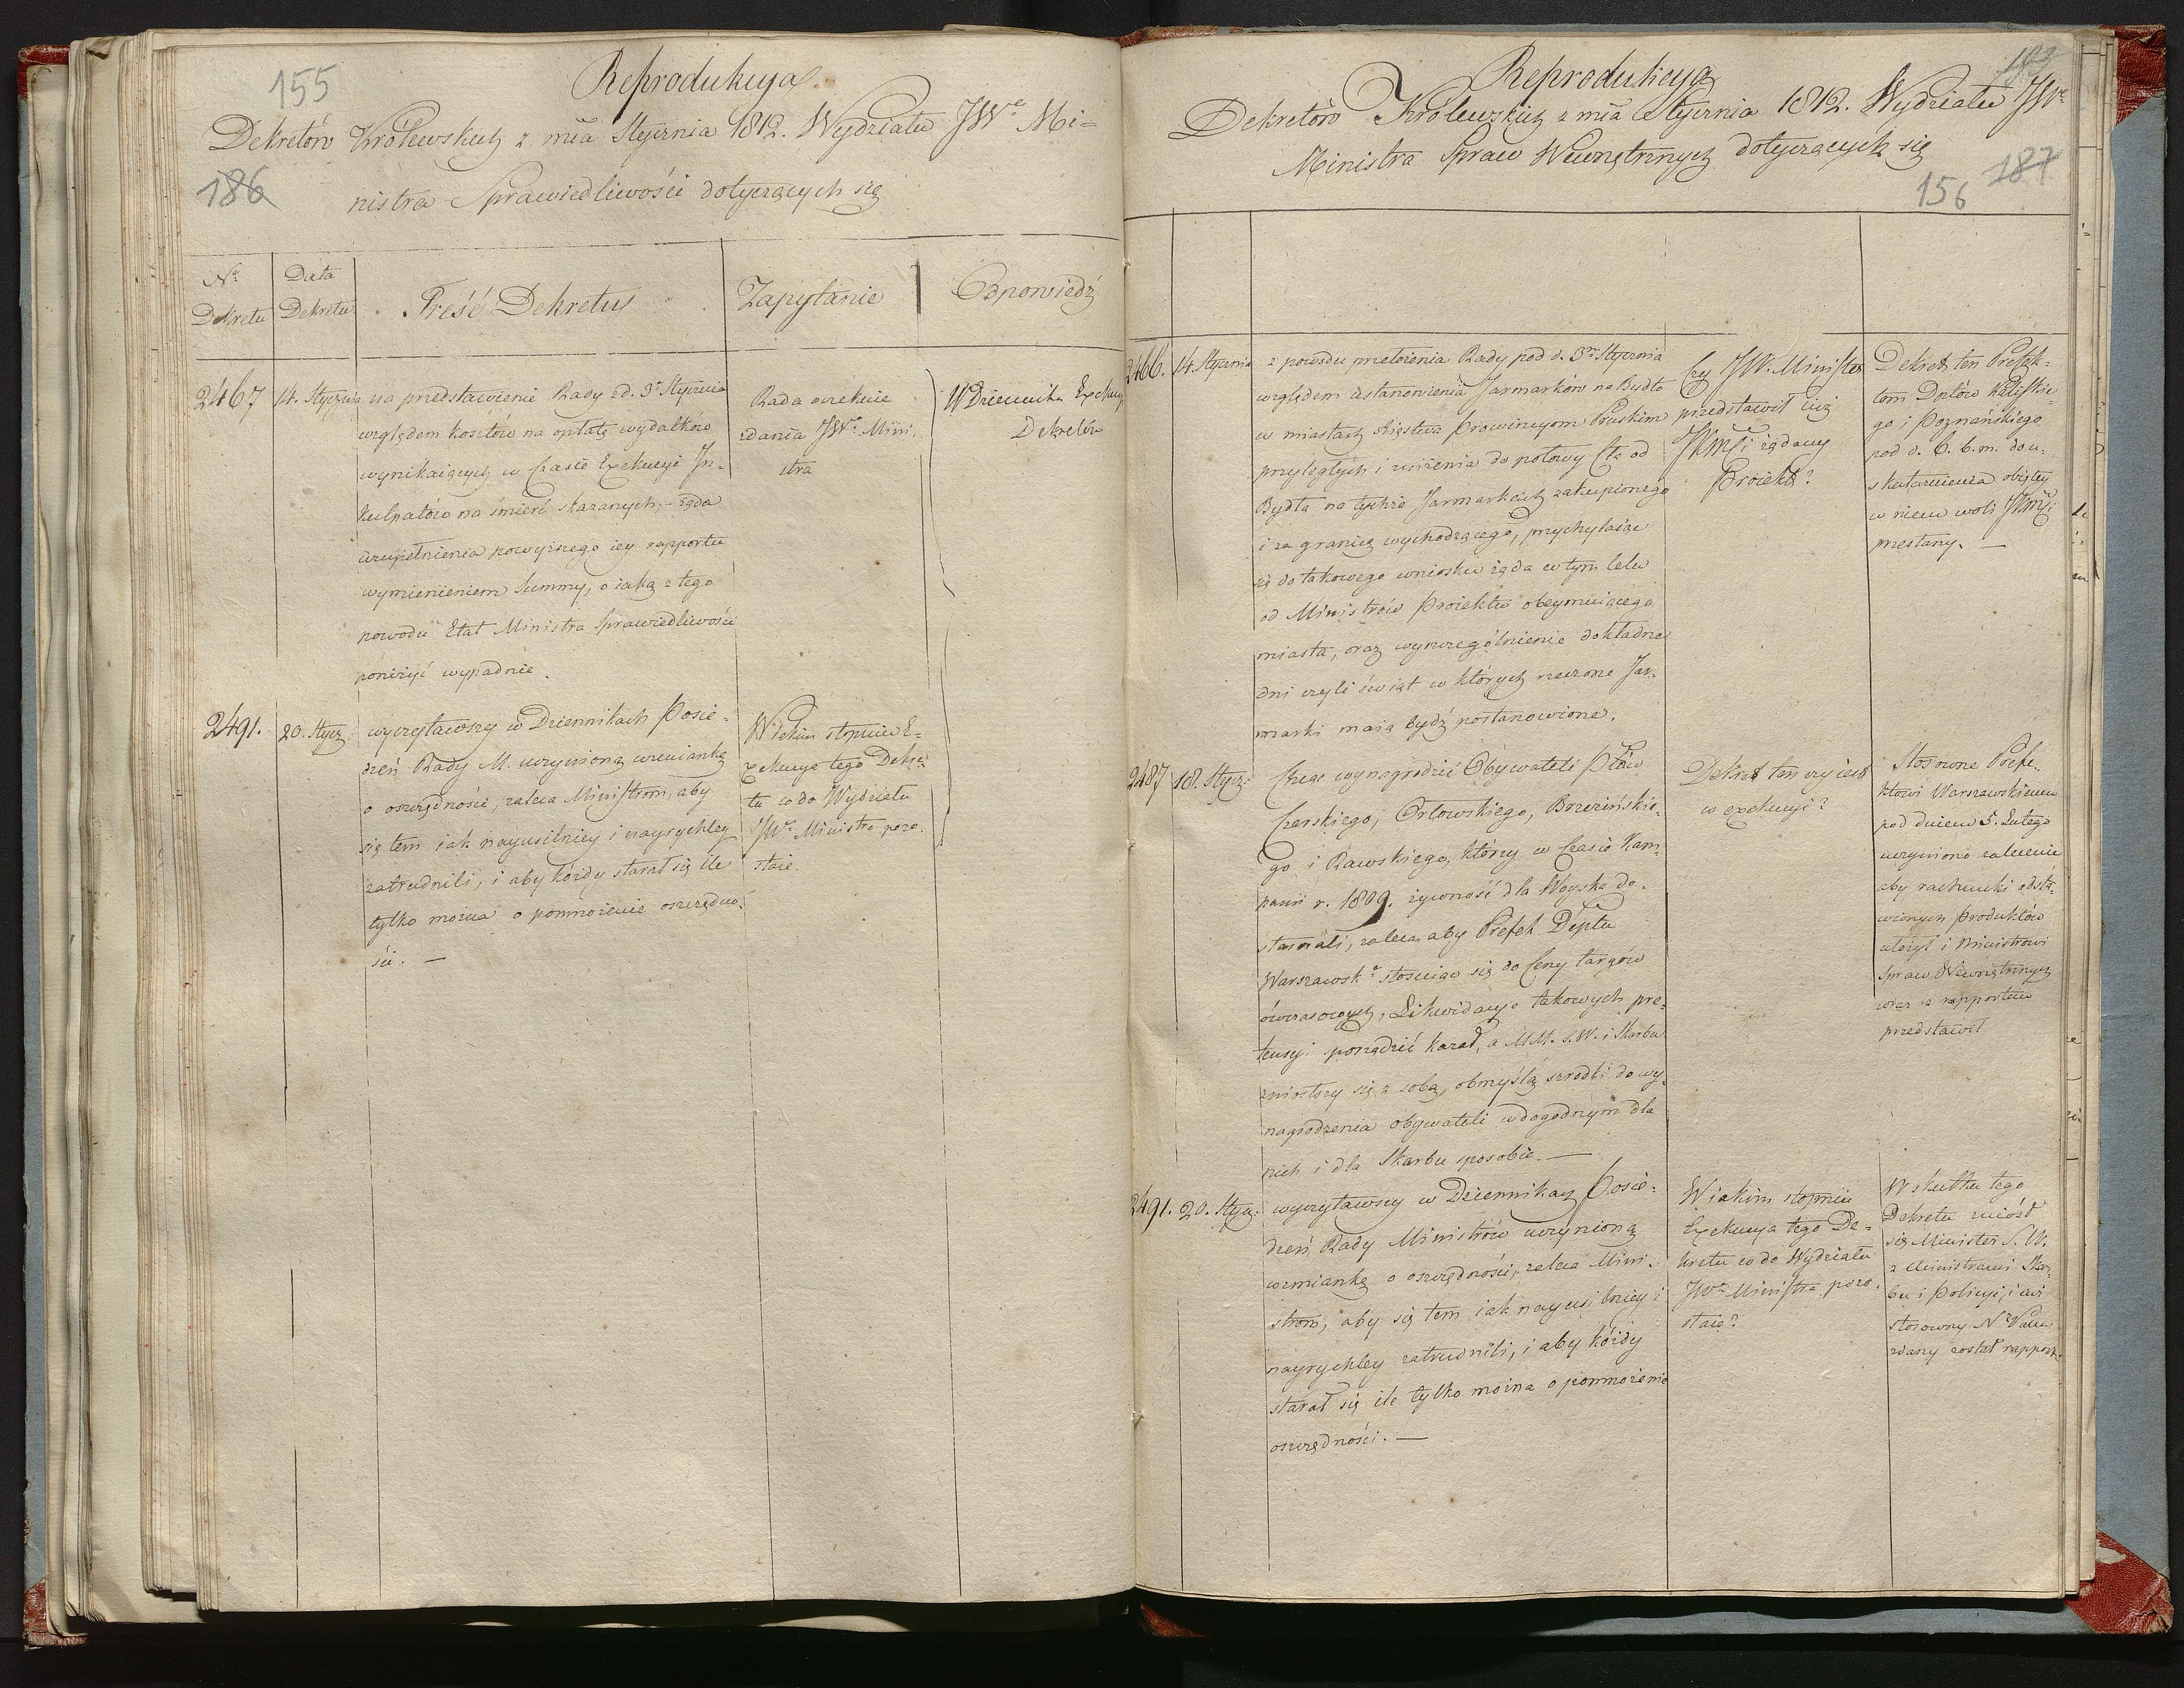 155
Reprodukcya
Dekretów Królewskich z mca Stycznia 1812. Wydziału JWo Mi=
186
nistra Sprawiedliwości dotyczących się
No Dekretu
Data Dekretu
Treść Dekretu
Zapytanie
Odpowiedź
2467
14. Stycznia
na przedstawienie Rady z d. 3o Stycznia
względem kosztów na opłatę wydatków
wynikaiących w czasie Exekucyi In-
kulpatów na śmierć skazanych, - żąda
uzupełnienia powyższego iey rapportu
wymienieniem Summy, o iaką z tego
powodu Etat Ministra Sprawiedliwości
poniżyć wypadnie.
Rada oczekuie
zdania JWo Mini-
stra
W Dzienniku Exekucyi
Dekretów
2491.
20. Stycz:
wyczytawszy w Dziennikach Posie-
dzeń Rady M. uczynioną wzmiankę
o oszczędności, zaleca Ministrom, aby
się tem iak nayusilniey i nayrychley
zatrudnili, i aby kóżdy starał się ile
tylko można o pomnożenie oszczędno-
ści. —
W iakim stopniu E-
xekucya tego Dekre-
tu co do Wydziału
JWo Ministra pozo-
staie.
Reprodukcya
Dekretów Królewskich z mca Stycznia 1812. Wydziału JWo
Ministra Spraw Wewnętrznych dotyczących się
187
156
2466.
14. Stycznia
z powodu przełożenia Rady pod d. 3m Stycznia
względem ustanowienia Jarmarków na Bydło
w miastach Xięstwa Prowincyom Pruskim
przyległych i zniżenia do połowy Cła od
Bydła na tychże Jarmarkach zakupionego
i za granicę wychodzącego, przychylaiąc
się do takowego wniosku żąda w tym celu
od Ministrów Proiektu obeymuiącego
miasta, oraz wyszczególnienie dokładne
dni czyli świąt w których rzeczone Jar-
marki maią bydź postanowione.
Czy JW. Minister
przedstawił iuż
JKMci żądany
Proiekt?
Dekret ten Prefek-
tom Dptów Kaliskie-
go i Poznańskiego
pod d. 6. b. m. do u-
skutecznienia obiętey
w niem woli JKMci
przesłany. —
2487
18. Stycz:
Chcąc wynagrodzić Obywateli Pttów
Czerskiego, Orłowskiego, Brzezińskie-
go i Rawskiego, którzy w czasie Kam-
panii r. 1809. żywność dla Woyska do-
starczali, zaleca aby Prefek Deptu
Warszawsko stosuiąc się do Ceny targów
ówczasowych, Likwidacye takowych pre-
tensyi porządzić kazał, a MM. S.W. i Skarbu
zniosłszy się z sobą, obmyślą szrodki do wy-
nagrodzenia obywateli w dogodnym dla
nich i dla Skarbu sposobie. —
Dekret ten czy iest
w exekucyi?
Stosowne Prefe-
ktowi Warszawskiemu
pod dniem 5. Lutego
uczyniono zalecenie
aby rachunki odsta-
wionych produktów
ułożył i Ministrowi
Spraw Wewnętrznych
wraz z rapportem
przedstawił
2491.
20. Stycz:
wyczytawszy w Dziennikach Posie-
dzeń Rady Ministrów uczynioną
wzmiankę o oszczędności, zaleca Mini-
strom, aby się tem iak nayusilniey i
nayrychley zatrudnili, i aby kóżdy
starał się ile tylko można o pomnożenie
oszczędności. —
W iakim stopniu
Exekucya tego De-
kretu co do Wydziału
JWo Ministra pozo-
staie?
W skutku tego
Dekretu zniósł
się Minister S. W.
z Ministrami Skar-
bu i Policyi, i
stosowny
zdany został rapport.